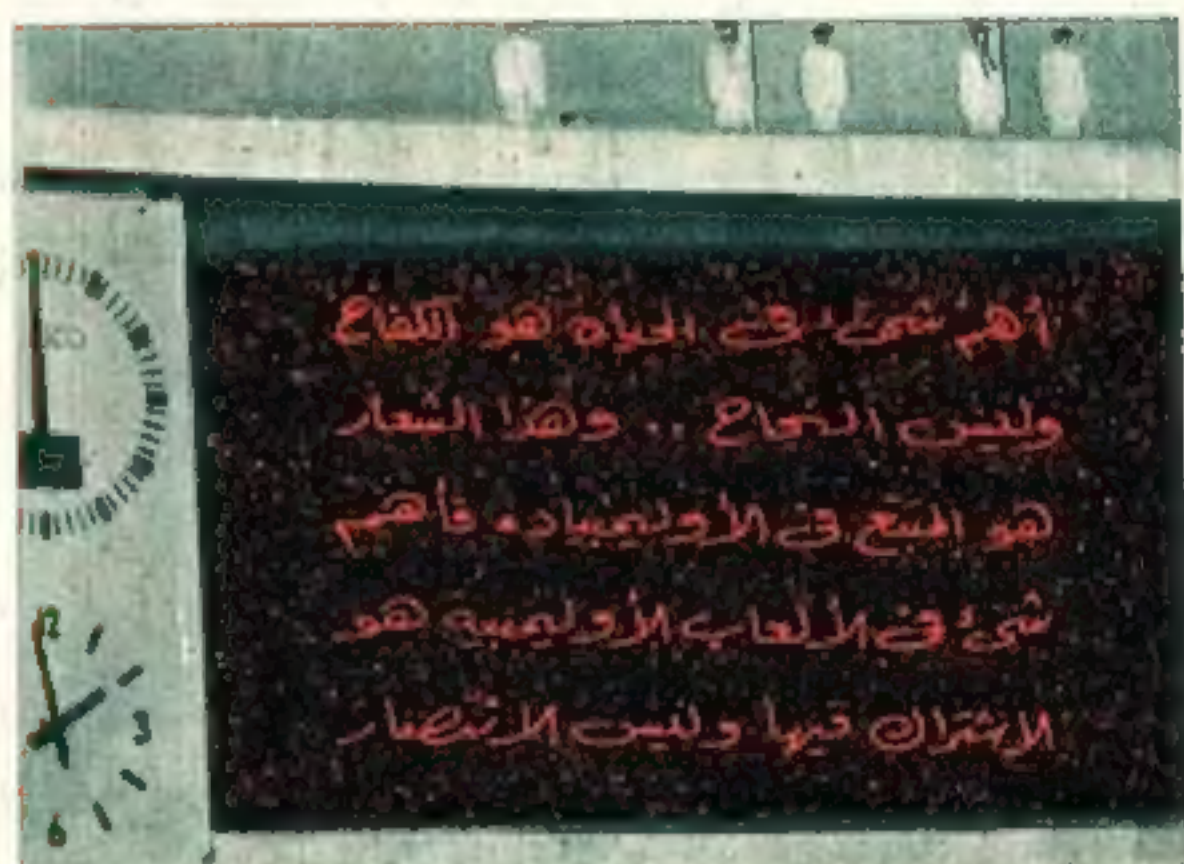 أهم شئ فى الحياه هو الكفاح
وليس النجاح .. وهذا الشعار
هو المتبع فى الأوليمبياد، فأهم
شئ فى الألعاب الأوليمبيه هو
الاشتراك فيها وليس الانتصار
60
12
3
6